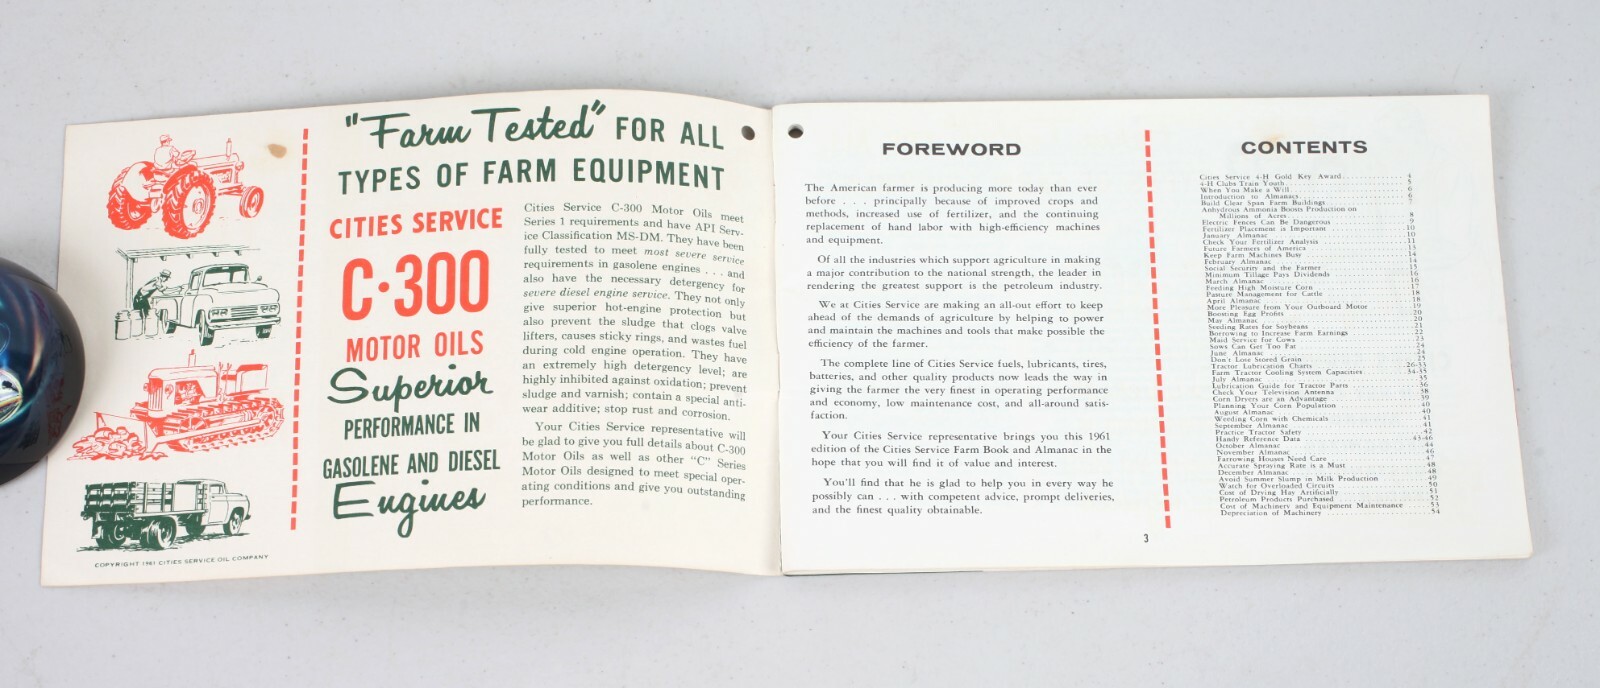 "Farm Tested" FOR ALL
TYPES OF FARM EQUIPMENT
CITIES SERVICE
C•300
MOTOR OILS
Superior
PERFORMANCE IN
GASOLENE AND DIESEL
Engines
Cities Service C-300 Motor Oils meet
Series 1 requirements and have API Serv-
ice Classification MS-DM. They have been
fully tested to meet most severe service
requirements in gasolene engines . . . and
also have the necessary detergency for
severe diesel engine service. They not only
give superior hot-engine protection but
also prevent the sludge that clogs valve
lifters, causes sticky rings, and wastes fuel
during cold engine operation. They have
an extremely high detergency level; are
highly inhibited against oxidation; prevent
sludge and varnish; contain a special anti-
wear additive; stop rust and corrosion.
Your Cities Service representative will
be glad to give you full details about C-300
Motor Oils as well as other "C" Series
Motor Oils designed to meet special oper-
ating conditions and give you outstanding
performance.
COPYRIGHT 1961 CITIES SERVICE OIL COMPANY
FOREWORD
The American farmer is producing more today than ever
before . . . principally because of improved crops and
methods, increased use of fertilizer, and the continuing
replacement of hand labor with high-efficiency machines
and equipment.
Of all the industries which support agriculture in making
a major contribution to the national strength, the leader in
rendering the greatest support is the petroleum industry.
We at Cities Service are making an all-out effort to keep
ahead of the demands of agriculture by helping to power
and maintain the machines and tools that make possible the
efficiency of the farmer.
The complete line of Cities Service fuels, lubricants, tires,
batteries, and other quality products now leads the way in
giving the farmer the very finest in operating performance
and economy, low maintenance cost, and all-around satis-
faction.
Your Cities Service representative brings you this 1961
edition of the Cities Service Farm Book and Almanac in the
hope that you will find it of value and interest.
You'll find that he is glad to help you in every way he
possibly can . . . with competent advice, prompt deliveries,
and the finest quality obtainable.
3
CONTENTS
Cities Service 4-H Gold Key Award 4
4-H Clubs Train Youth 5
When You Make a Will 6
Introduction to Almanacs 6
Build Clear Span Farm Buildings 7
Anhydrous Ammonia Boosts Production on
Millions of Acres 8
Electric Fences Can Be Dangerous 9
Fertilizer Placement is Important 10
January Almanac 10
Check Your Fertilizer Analysis 11
Future Farmers of America
Keep Farm Machines Busy 14
February Almanac 14
Social Security and the Farmer
Minimum Tillage Pays Dividends 16
March Almanac 16
Feeding High Moisture Corn 17
Pasture Management for Cattle 18
April Almanac 18
More Pleasure from Your Outboard Motor 19
Boosting Egg Profits 20
May Almanac 20
Seeding Rates for Soybeans 21
Borrowing to Increase Farm Earnings 22
Maid Service for Cows 23
Sows Can Get Too Fat 24
June Almanac 24
Don't Lose Stored Grain 25
Tractor Lubrication Charts 26-33
Farm Tractor Cooling System Capacities 34-35
July Almanac 35
Lubrication Guide for Tractor Parts 36
Check Your Television Antenna 38
Corn Dryers are an Advantage 39
Planning Your Corn Population 40
August Almanac 40
Weeding Corn with Chemicals 41
September Almanac 41
Practice Tractor Safety 42
Handy Reference Data 43-46
October Almanac 44
November Almanac 46
Farrowing Houses Need Care 47
Accurate Spraying Rate is a Must 48
December Almanac 48
Avoid Summer Slump in Milk Production 49
Watch for Overloaded Circuits 50
Cost of Drying Hay Artificially 51
Petroleum Products Purchased 52
Cost of Machinery and Equipment Maintenance 53
Depreciation of Machinery 54